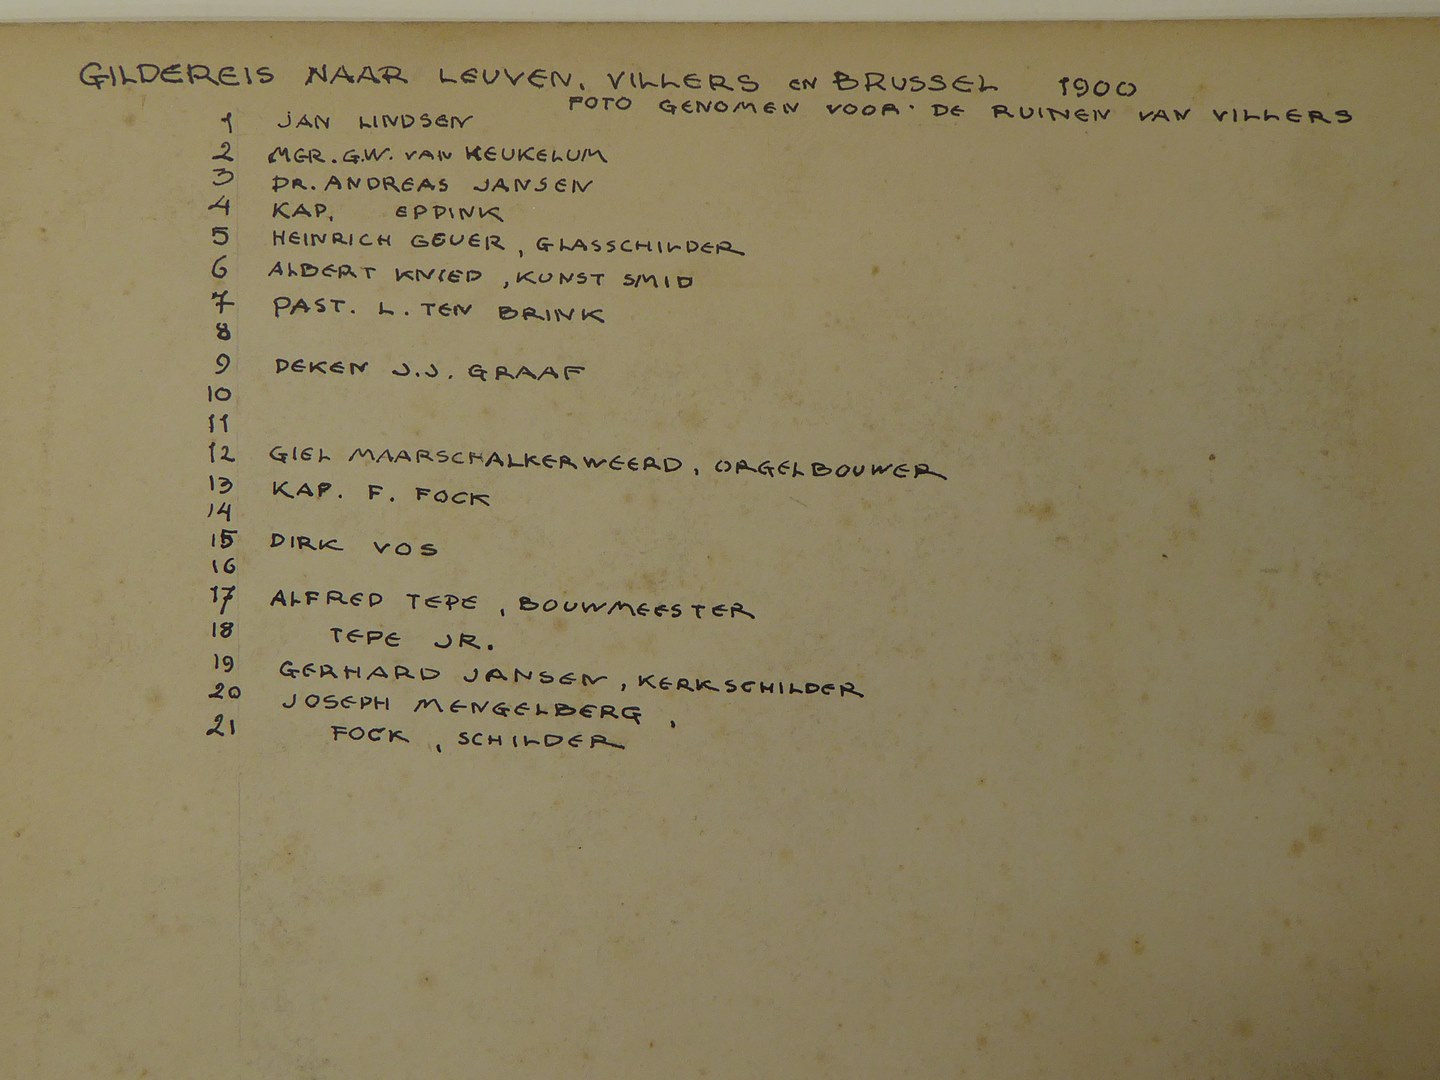 GILDEREIS NAAR LEUVEN, VILLERS EN BRUSSEL 1900
FOTO GENOMEN VOOR DE RUINEN VAN VILLERS
1 JAN LINDSEN
2 MGR. G.W. VAN HEUKELUM
3 DR. ANDREAS JANSEN
4 KAP. EPPINK
5 HEINRICH GEUER, GLASSCHILDER
6 ALBERT KNIED, KUNST SMID
7 PAST. L. TEN BRINK
8
9 DEKEN J.J. GRAAF
10
11
12 GIEL MAARSCHALKERWEERD, ORGELBOUWER
13 KAP. F. FOCK
14
15 DIRK VOS
16
17 ALFRED TEPE, BOUWMEESTER
18 TEPE JR.
19 GERHARD JANSEN, KERKSCHILDER
20 JOSEPH MENGELBERG,
21 FOCK, SCHILDER